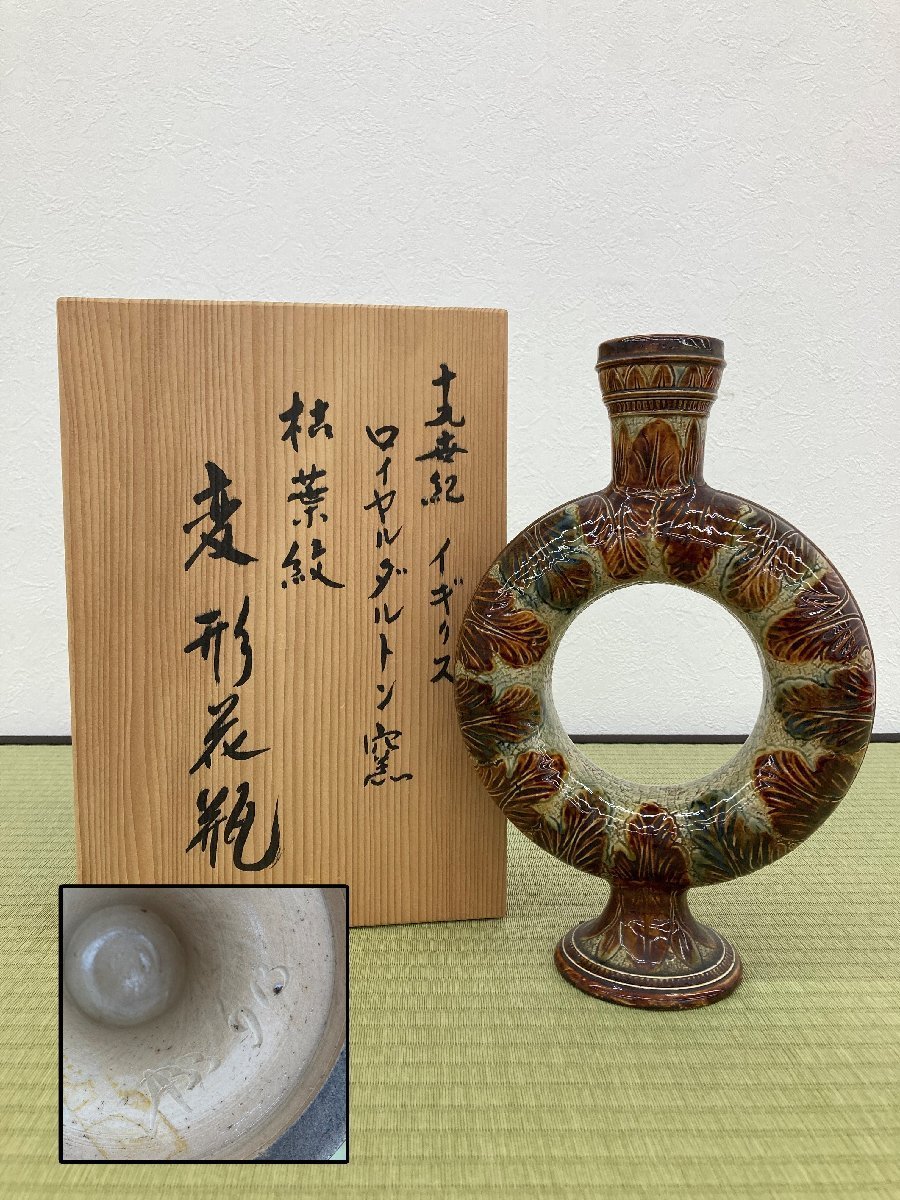 十九世紀 イギリス
ロイヤルダルトン窯
枯葉紋
変形花瓶